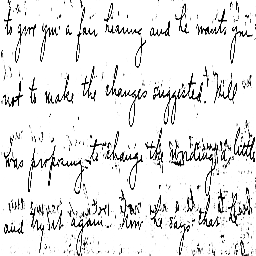 to give you a fair hearing and he wants you
not to make the changes suggested. Will
was proposing to change the wording a little
and try it again. Now he says that